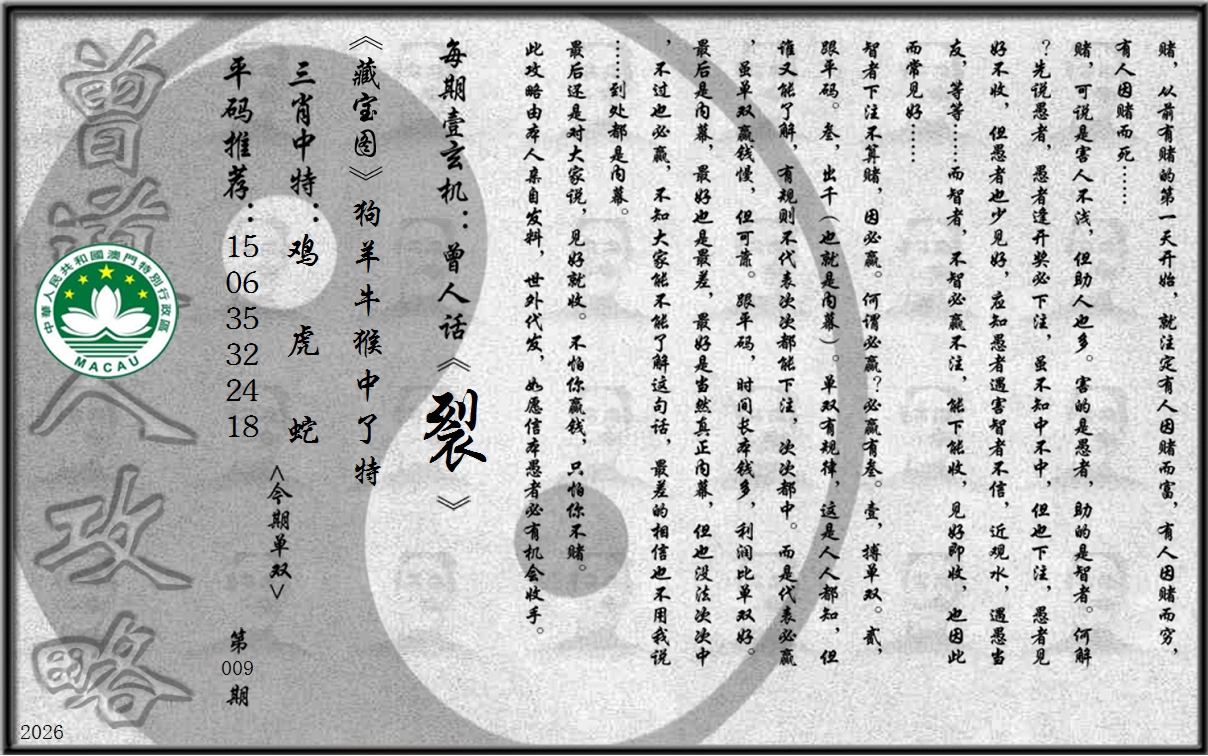 赌，从前有赌的第一天开始，就注定有人因赌而富，有人因赌而穷，
有人因赌而死……
赌，可说是害人不浅，但助人也多。害的是愚者，助的是智者。何解
？先说愚者，愚者逢开奖必下注，虽不知中不中，但也下注，愚者见
好不收，但愚者也少见好，应知愚者遇害智者不信，近观水，遇愚当
友，等等……而智者，不智必赢不注，能下能收，见好即收，也因此
而常见好……
智者下注不算赌，因必赢。何谓必赢？必赢有叁。壹，搏单双。贰，
跟平码。叁，出千（也就是内幕）。单双有规律，这是人人都知，但
谁又能了解，有规则不代表次次都能下注，次次都中。而是代表必赢
，虽单双赢钱慢，但可靠。跟平码，时间长本钱多，利润比单双好。
最后是内幕，最好也是最差，最好是当然真正内幕，但也没法次次中
，不过也必赢，不知大家能不能了解这句话，最差的相信也不用我说
……到处都是内幕。
最后还是对大家说，见好就收。不怕你赢钱，只怕你不赌。
此攻略由本人亲自发料，世外代发，如愿信本愚者必有机会收手。
每期壹玄机：曾人话《裂》
《藏宝图》狗羊牛猴中了特
三肖中特：鸡 虎 蛇
<今期单双>
平码推荐：15 06 35 32 24 18
第009期
曾道人攻略
中華人民共和國澳門特別行政區
MACAU
2026